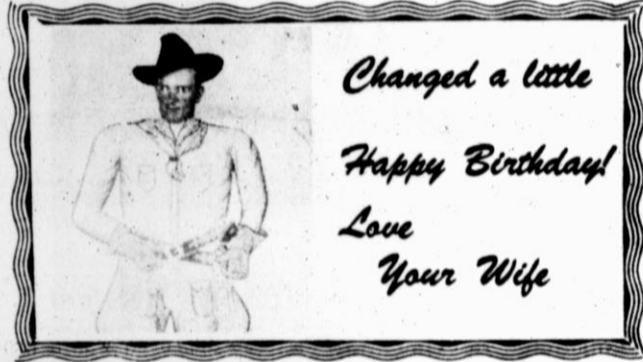 Changed a little
Happy Birthday!
Love
Your Wife